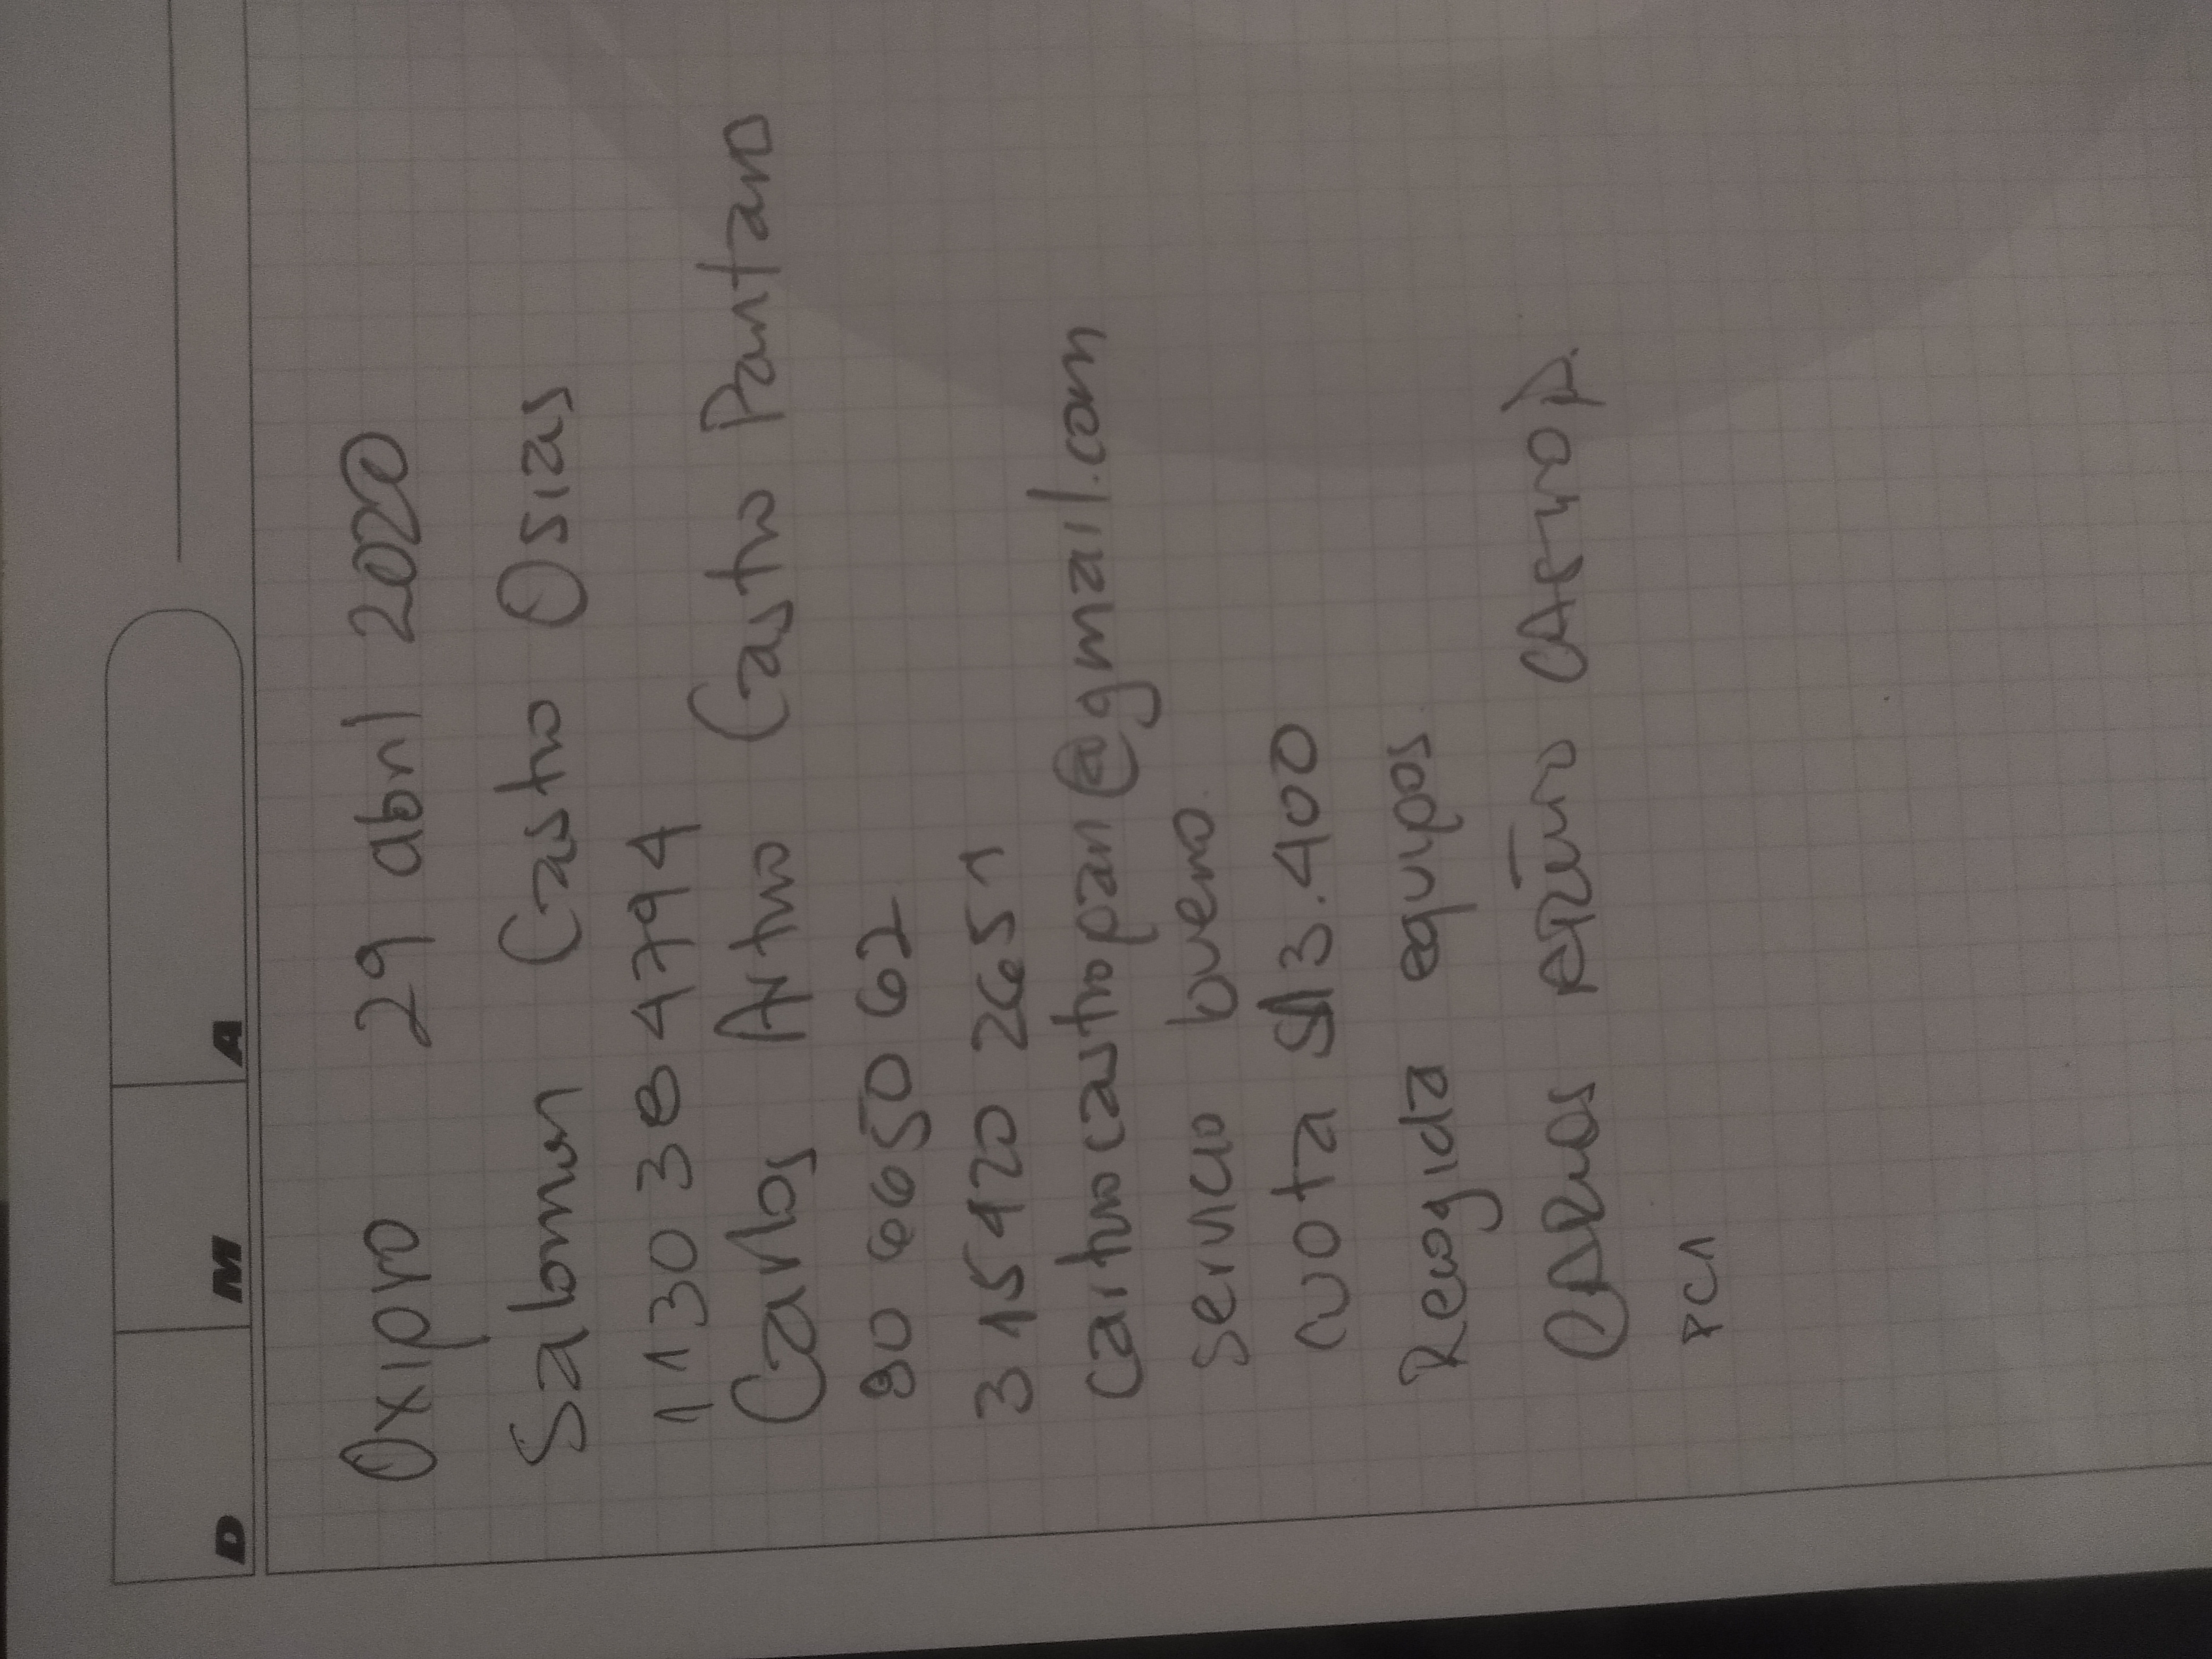 D M A
Oxipro 29 abril 2020
Salomon Castro Osias
1130384794
Carlos Artuo Castro Pantano
80 665062
315 920 2651
cartuocastropan@gmail.com
Servicio bueno.
nota 3.400
Recogida equipos
CARLOS ARTURO CASTRO P.